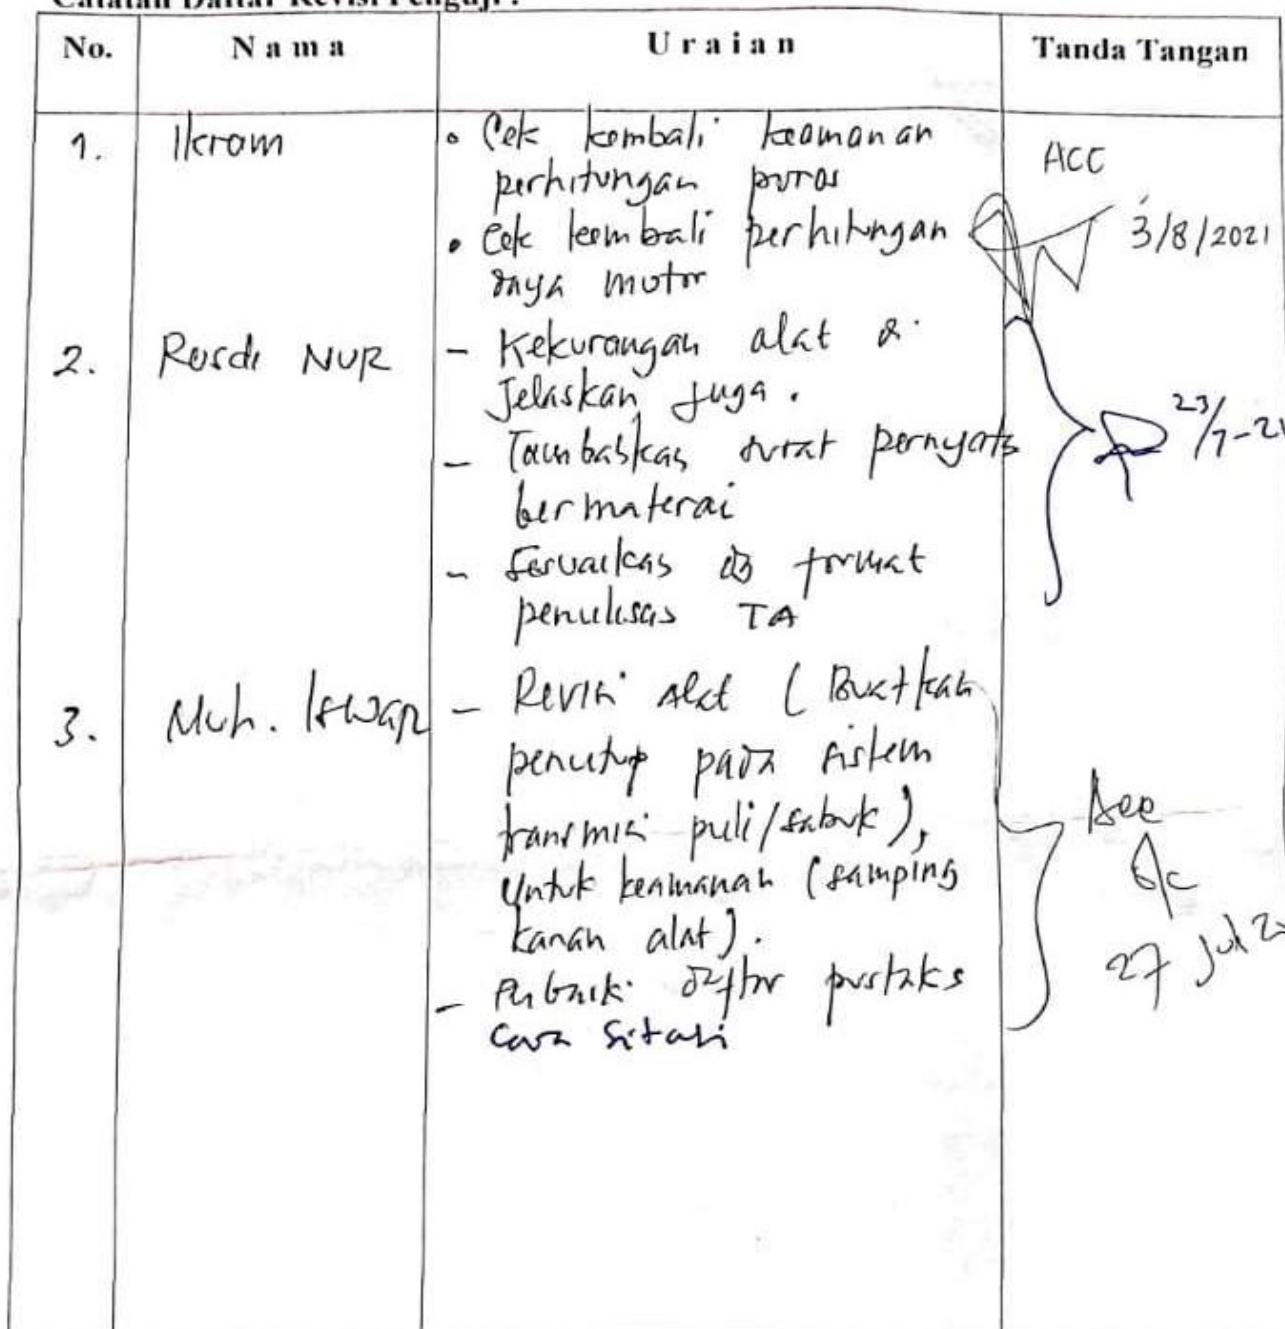 Catatan Daftar Revisi Penguji :
No. Nama Uraian Tanda Tangan
1. Ikram • Cek kembali keamanan
perhitungan poros
• Cek kembali perhitungan
daya motor
ACC
3/8/2021
2. Rusdi NUR - Kekurangan alat di
Jelaskan juga.
- Tambahkan surat pernyata
bermaterai
- Sesuaikan dg format
penulisan TA
23/7-21
3. Muh. Iswar - Revisi Alat (Buatkan
penutup pada sistem
transmisi puli/sabuk),
untuk keamanan (samping
kanan alat).
- Perbaiki daftar pustaka
cara sitasi
Acc
27 Jul 2